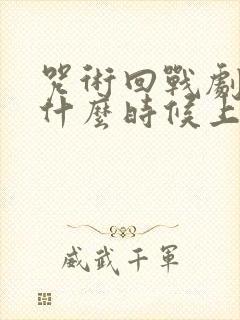 咒術回戰劇
什麼時候上
威武千軍